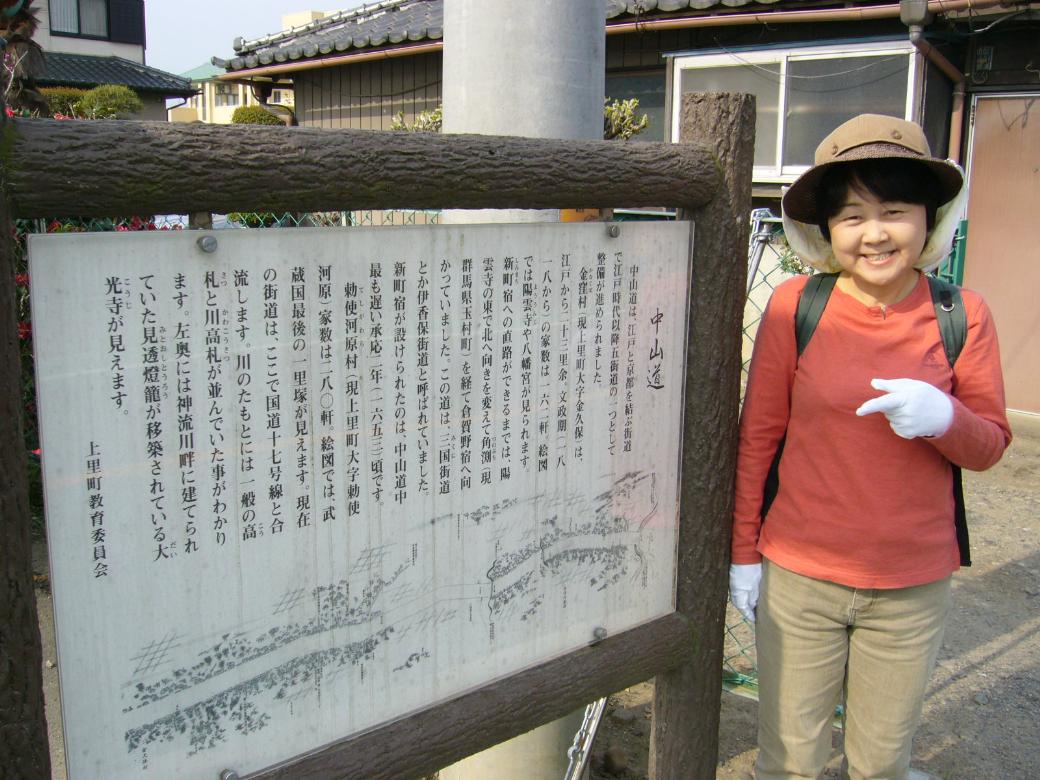 中山道
中山道は、江戸と京都を結ぶ街道
で江戸時代以降五街道の一つとして
整備が進められました。
金窪村（現上里町大字金久保）は、
江戸から二十三里余、文政期（一八
一八から）の家数は一六二軒、絵図
では陽雲寺や八幡宮が見られます。
新町宿への直路ができるまでは、陽
雲寺の東で北へ向きを変えて角渕（現
群馬県玉村町）を経て倉賀野宿へ向
かっていました。この道は、三国街道
とか伊香保街道と呼ばれていました。
新町宿が設けられたのは、中山道中
最も遅い承応二年（一六五三）頃です。
勅使河原村（現上里町大字勅使
河原）家数は二八〇軒。絵図では、武
蔵国最後の一里塚が見えます。現在
の街道は、ここで国道十七号線と合
流します。川のたもとには一般の高
札と川高札が並んでいた事がわかり
ます。左奥には神流川畔に建てられ
ていた見透燈籠が移築されている大
光寺が見えます。
上里町教育委員会